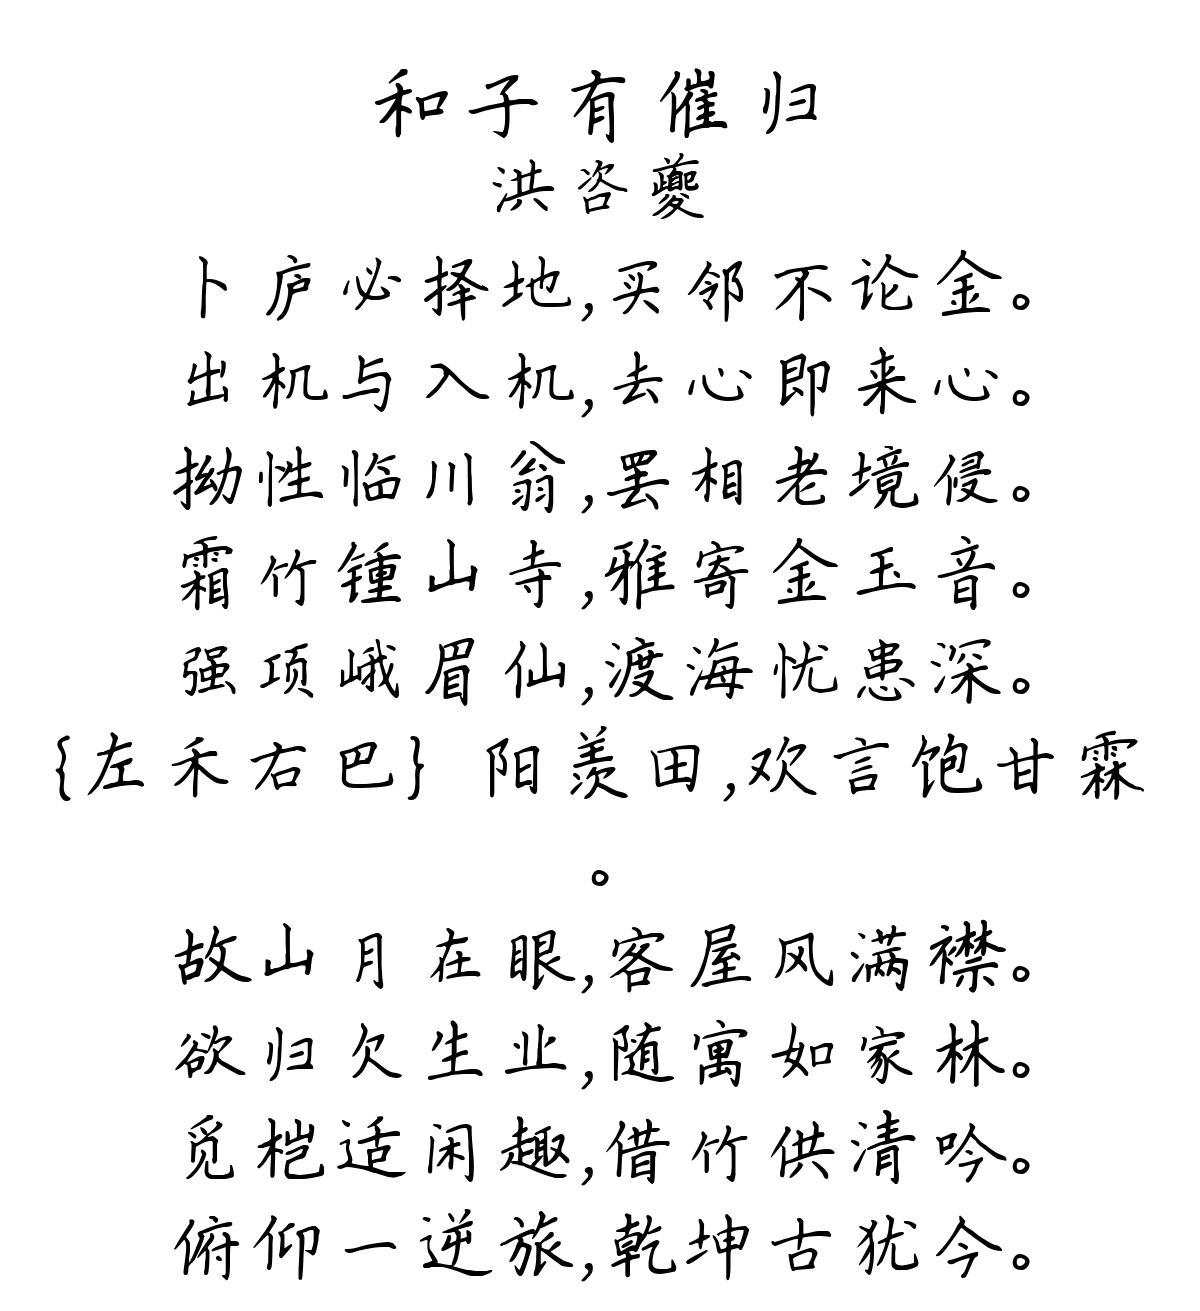 和子有催归
洪咨夔
卜庐必择地,买邻不论金。
出机与入机,去心即来心。
拗性临川翁,罢相老境侵。
霜竹锺山寺,雅寄金玉音。
强项峨眉仙,渡海忧患深。
{左禾右巴} 阳羡田,欢言饱甘霖
。
故山月在眼,客屋风满襟。
欲归欠生业,随寓如家林。
觅桤适闲趣,借竹供清吟。
俯仰一逆旅,乾坤古犹今。